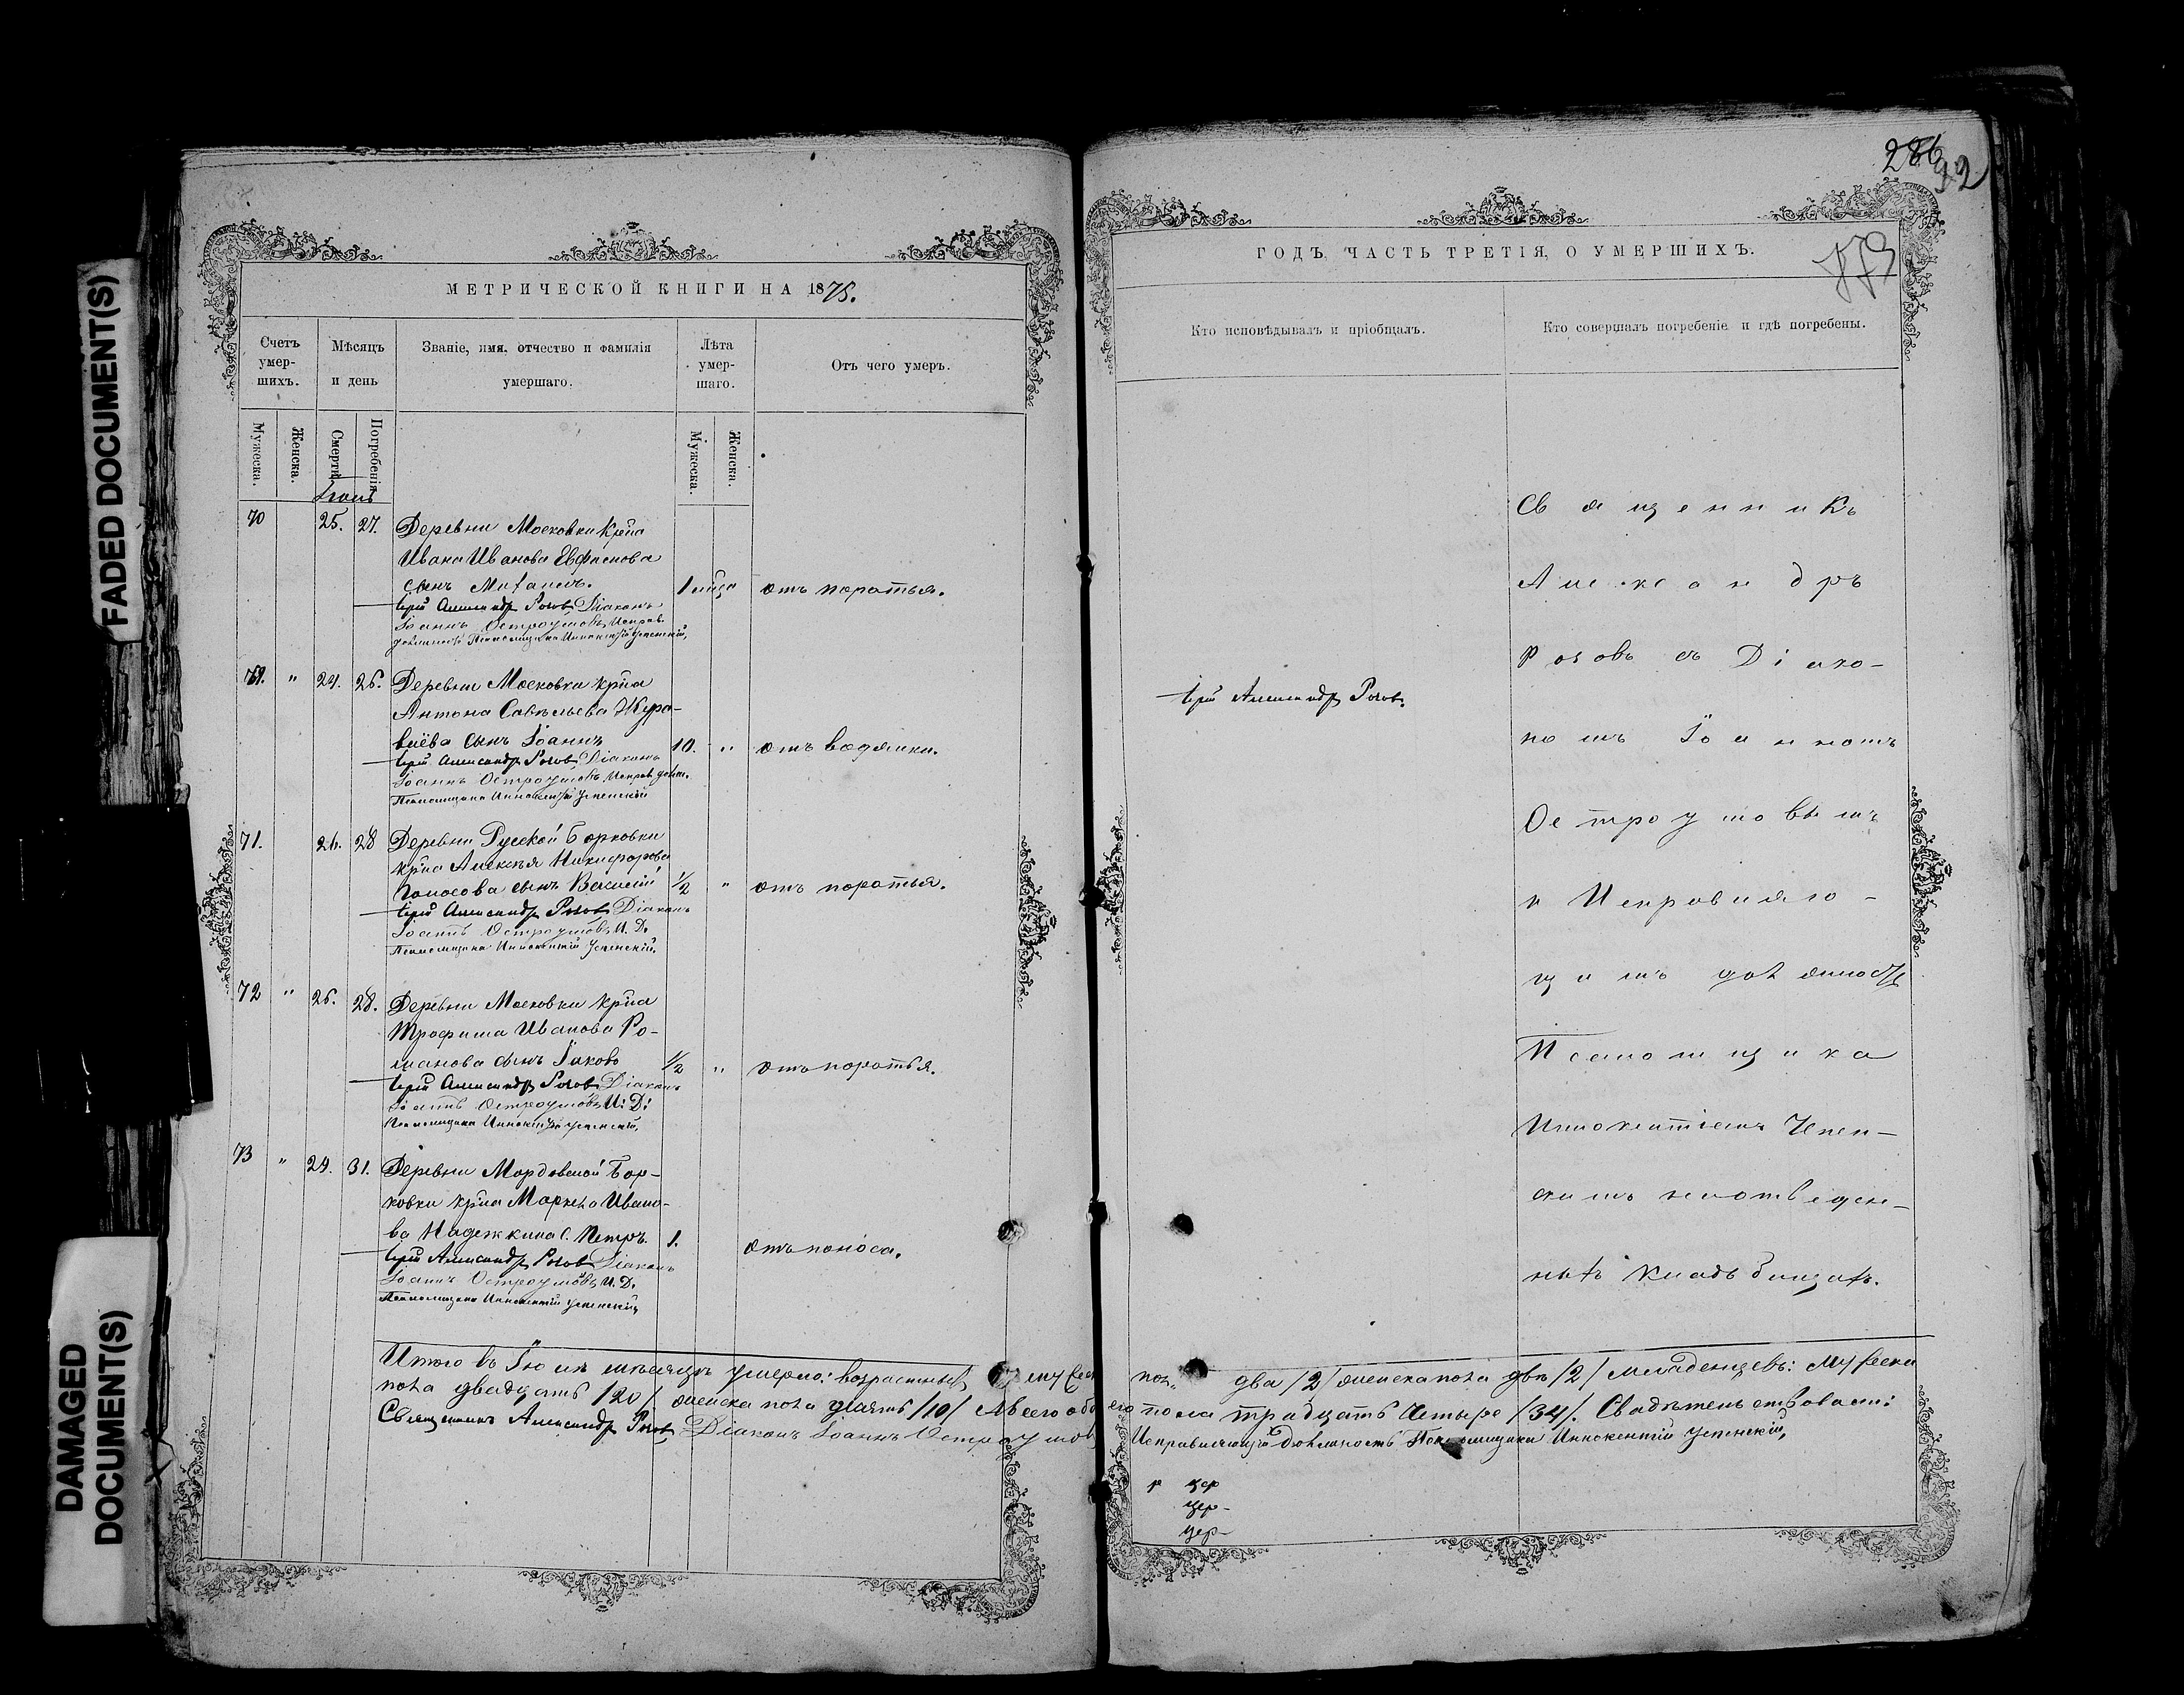 FADED DOCUMENT(S)
DAMAGED
DOCUMENT(S)
МЕТРИЧЕСКОЙ КНИГИ НА 1875.
Счетъ
умер-
шихъ.
Мѣсяцъ
и день
Званіе, имя, отчество и фамилія
умершаго.
Лѣта
умер-
шаго.
Отъ чего умеръ.
Мужеска.
Женска.
Смерти.
Погребенія.
Мужеска.
Женска.
70 25. 27. Деревни Московки крѣна
Ивана Иванова
сынъ
отъ поротья.
Іерей Александръ Розовъ Діаконъ
Іоаннъ Остроумовъ Исправ.
Псаломщика Иннокентій Успенскій,
" 24. 26. Деревни Московки крѣна
Антона Савельева Жура-
влёва сынъ Іоаннъ 10. " отъ водянки.
Іерей Александръ Розовъ Діаконъ
Іоаннъ Остроумовъ Исправ. долж.
Псаломщика Иннокентій Успенскій
71. 26. 28 Деревни Русской Борковки
крѣна Алексѣя Никифорова
сынъ Василій 1/2 " отъ поротья.
Іерей Александръ Розовъ Діаконъ
Іоаннъ Остроумовъ И. Д.
Псаломщика Иннокентій Успенскій.
72 " 26. 28. Деревни Московки крѣна
Трофима Иванова Ро-
манова сынъ Іаковъ 1/2 " отъ поротья.
Іерей Александръ Розовъ Діаконъ
Іоаннъ Остроумовъ И: Д:
Псаломщика Иннокентій Успенскій,
73 " 29. 31. Деревни Мордовской Бор-
ковки крѣна Марка Ивано-
ва Надежкина с. Петръ. 1. отъ поноса.
Іерей Александръ Розовъ Діаконъ
Іоаннъ Остроумовъ И. Д.
Псаломщика Иннокентій Успенскій
Итого въ мѣсяцѣ умерло: возрастныхъ
пола двадцать /20/ женска пола десять /10/ А всего
Священникъ Александръ Розовъ Діаконъ Іоаннъ Остроумовъ
286
92
ГОДЪ, ЧАСТЬ ТРЕТІЯ, О УМЕРШИХЪ.
Кто исповѣдывалъ и пріобщалъ.
Кто совершалъ погребеніе и гдѣ погребены.
Іерей Александръ Розовъ.
Священникъ
Александръ
Розовъ съ Діако-
номъ Іоанномъ
Остроумовымъ
и Исправляю-
щимъ должность
Псаломщика
Иннокентіемъ Успен-
скимъ на отведен-
номъ кладбищѣ.
два /2/ женска пола двѣ /2/ младенцевъ: мужеска
пола тридцать четыре /34/. Свидѣтельствовали:
Исправляющій Должность Псаломщика Иннокентій Успенскій,